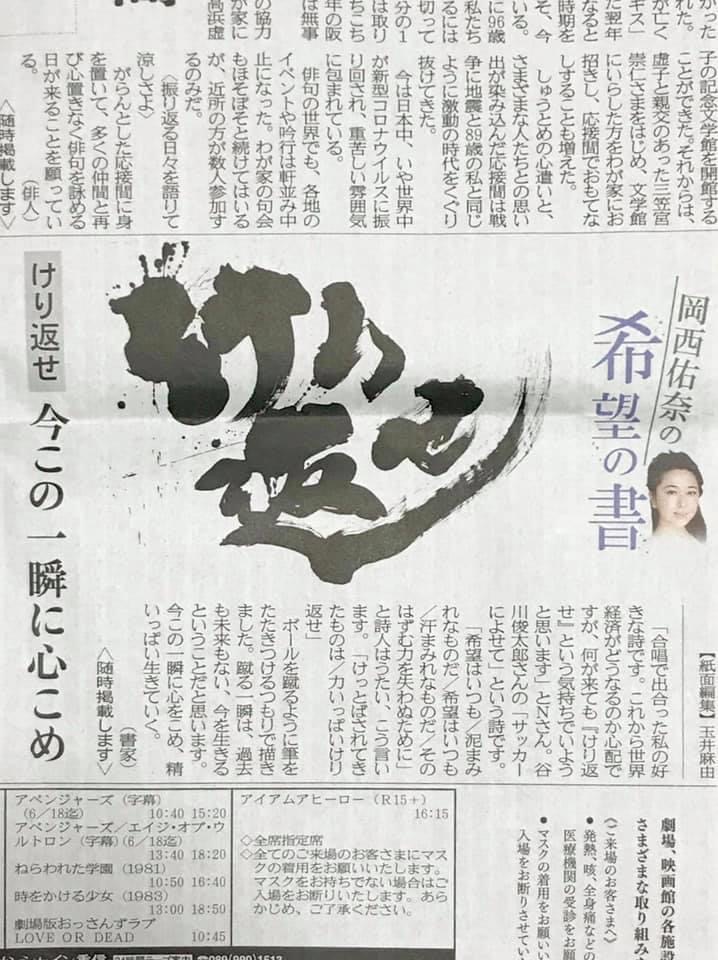 かった
れた。
が亡く
ギス」
た翌年
なると
時期を
そ、今
いる。
に96歳
私たち
るには
切って
分の1
は取り
ちこち
年の阪
は無事
の協力
が家に
高浜虚
子の記念文学館を開館する
ことができた。それからは、
虚子と親交のあった三笠宮
崇仁さまをはじめ、文学館
にいらした方をわが家にお
招きし、応接間でおもてな
しすることも増えた。
しゅうとめの心遣いと、
さまざまな人たちとの思い
出が染み込んだ応接間は戦
争に地震と89歳の私と同じ
ように激動の時代をくぐり
抜けてきた。
今は日本中、いや世界中
が新型コロナウイルスに振
り回され、重苦しい雰囲気
に包まれている。
俳句の世界でも、各地の
イベントや吟行は軒並み中
止になった。わが家の句会
もほそぼそと続けてはいる
が、近所の方が数人参加す
るのみだ。
〈振り返る日々を語りて
涼しさよ〉
がらんとした応接間に身
を置いて、多くの仲間と再
び心置きなく俳句を詠める
日が来ることを願ってい
る。 （俳人）
＜随時掲載します＞
岡西佑奈の
希望の書
けり
返せ
けり返せ 今この一瞬に心こめ
【紙面編集】玉井麻由
「合唱で出合った私の好
きな詩です。これから世界
経済がどうなるのか心配で
すが、何が来ても『けり返
せ』という気持ちでいよう
と思います」とNさん。谷
川俊太郎さんの「サッカー
によせて」という詩です。
「希望はいつも／泥まみ
れなものだ／希望はいつも
／汗まみれなものだ／その
はずむ力を失わぬために」
と詩人はうたい、こう言い
ます。「けっとばされてき
たものは／力いっぱいけり
返せ」
ボールを蹴るように筆を
たたきつけるつもりで描き
ました。蹴る一瞬は、過去
も未来もない、今を生きる
ということだと思います。
今この一瞬に心をこめ、精
いっぱい生きていく。
（書家）
＜随時掲載します＞
アベンジャーズ（字幕）
（6/18迄） 10:40 15:20
アベンジャーズ／エイジ・オブ・ウ
ルトロン（字幕）（6/18迄）
13:40 18:20
ねらわれた学園（1981）
10:50 16:40
時をかける少女（1983）
13:00 18:50
劇場版おっさんずラブ
LOVE OR DEAD 10:45
アイアムアヒーロー（R15＋）
16:15
◇全席指定席
◇全てのご来場のお客さまにマス
クの着用をお願いいたします。
マスクをお持ちでない場合はご
入場をお断りいたします。あら
かじめ、ご了承ください。
劇場、映画館の各施設
さまざまな取り組み
〈ご来場のお客さまへ〉
●発熱、咳、全身痛などの
医療機関の受診をお願
●マスクの着用をお願い
入場をお断りさせてい